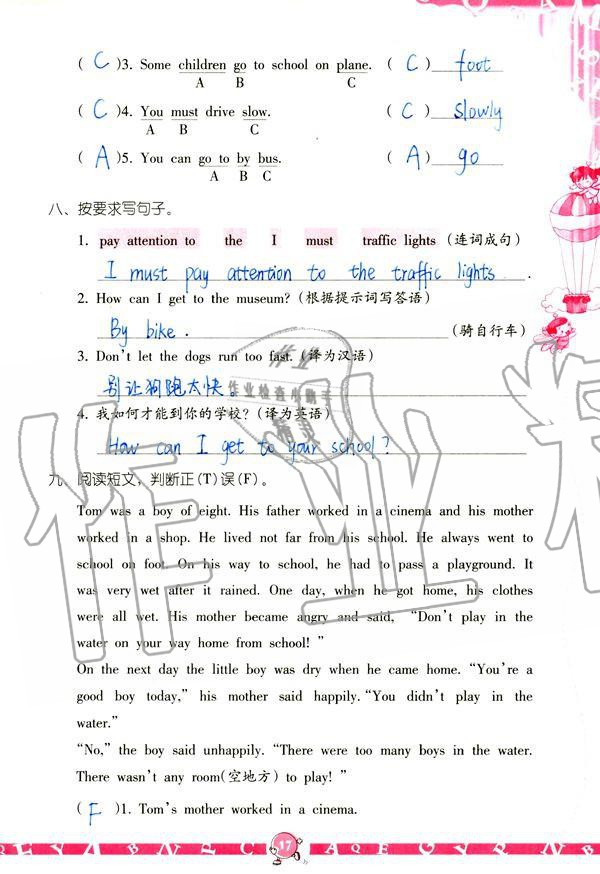 ( C )3. Some children go to school on plane. ( C ) foot
A B C
( C )4. You must drive slow. ( C ) slowly
A B C
( A )5. You can go to by bus. ( A ) go
A B C
八、按要求写句子。
1. pay attention to the I must traffic lights (连词成句)
I must pay attention to the traffic lights .
2. How can I get to the museum? (根据提示词写答语)
By bike . (骑自行车)
3. Don't let the dogs run too fast. (译为汉语)
别让狗跑太快。
4. 我如何才能到你的学校? (译为英语)
How can I get to your school?
九、阅读短文,判断正(T)误(F)。
Tom was a boy of eight. His father worked in a cinema and his mother
worked in a shop. He lived not far from his school. He always went to
school on foot. On his way to school, he had to pass a playground. It
was very wet after it rained. One day, when he got home, his clothes
were all wet. His mother became angry and said, “Don't play in the
water on your way home from school! ”
On the next day the little boy was dry when he came home. “You're a
good boy today,” his mother said happily. “You didn't play in the
water.”
“No,” the boy said unhappily. “There were too many boys in the water.
There wasn't any room(空地方) to play! ”
( F )1. Tom's mother worked in a cinema.
17
作业检查小助手
作业